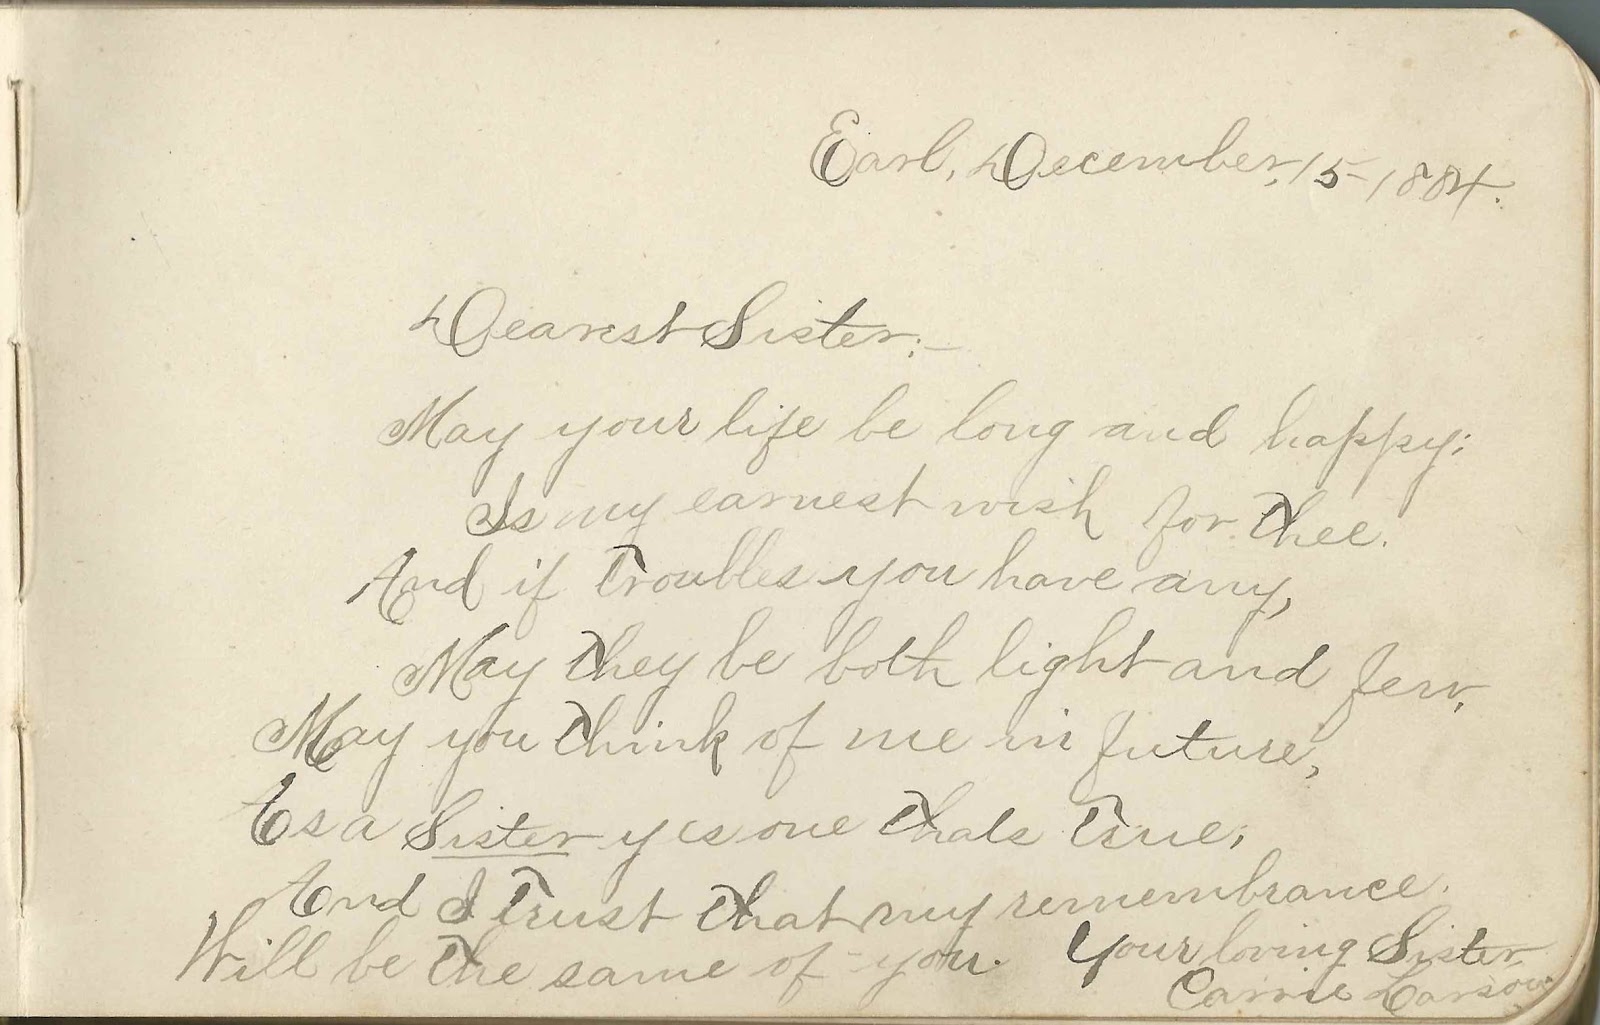 Earl, December, 15 1884.
Dearest Sister:—
May your life be long and happy;
Is my earnest wish for thee.
And if troubles you have any,
May they be both light and few,
May you think of me in future,
As a Sister yes one thats true;
And I trust that my remembrance.
Will be the same of you. Your loving Sister
Carrie Larson.